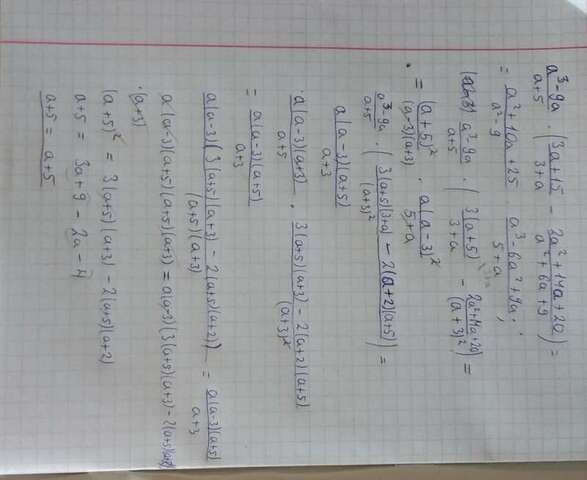 a³-9a/a+5 · (3a+15/3+a - 2a²+14a+20/a²+6a+9) =
= a²+10a+25/a²-9 · a³-6a²+9a/5+a ;
a³-9a/a+5 · (3(a+5)/3+a - 2a²+14a+20/(a+3)²) =
= (a+5)²/(a-3)(a+3) · a(a-3)²/5+a
a³-9a/a+5 · (3(a+5)(3+a) - 2(a+2)(a+5)/(a+3)²) =
a(a-3)(a+5)/a+3
a(a-3)(a+3)/a+5 · 3(a+5)(a+3) - 2(a+2)(a+5)/(a+3)²
= a(a-3)(a+5)/a+3
a(a-3)(3(a+5)(a+3) - 2(a+5)(a+2))/(a+5)(a+3) = a(a-3)(a+5)/a+3
a(a-3)(a+5)(a+5)(a+3) = a(a-3)(3(a+5)(a+3)-2(a+5)(a+2))
·(a+3)
(a+5)² = 3(a+5)(a+3) - 2(a+5)(a+2)
a+5 = 3a+9 - 2a-4
a+5 = a+5